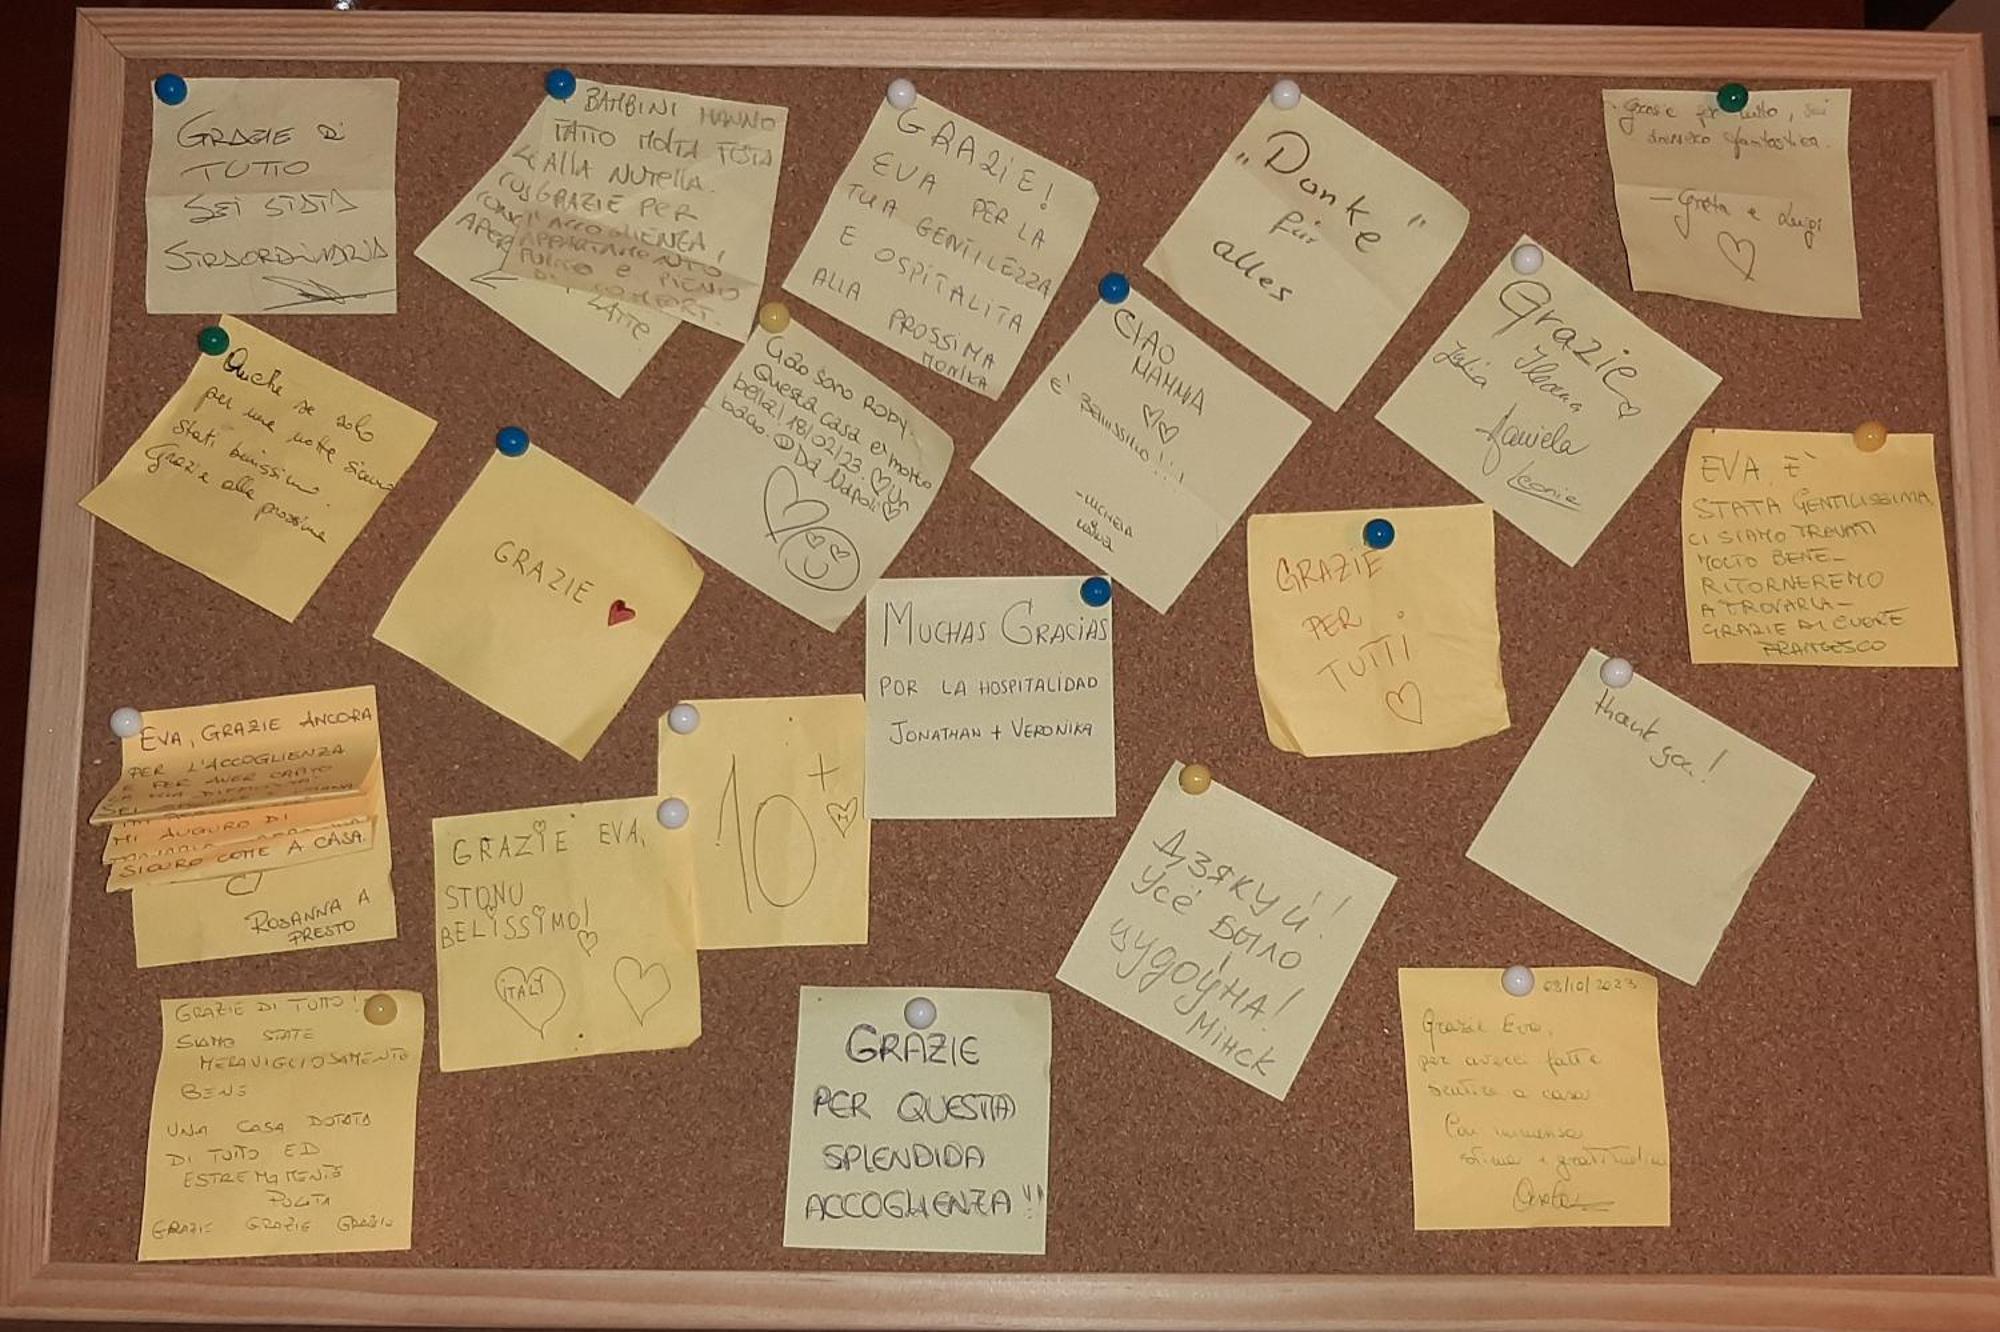 GRAZIE DI
TUTTO
SEI STATA
STRAORDINARIA
BAMBINI HANNO
FATTO MOLTA FESTA
ALLA NUTELLA.
GRAZIE PER
L'ACCOGLIENZA,
APPARTAMENTO
PULITO E PIENO
DI COMFORT.
LATTE
GRAZIE!
EVA PER LA
TUA GENTILEZZA
E OSPITALITA
ALLA PROSSIMA
MONIKA
"Danke"
für
alles
Grazie per tutto, sei
davvero fantastica.
- Greta e Luigi
Grazie
Ileana
Julia
Daniela
Leonie
Anche se solo
per una notte siamo
stati benissimo.
Grazie alla prossima
GRAZIE
Ciao sono Roby.
Questa casa e molto
bella! 18/02/23. Un
bacio. Da Napoli
CIAO
MAMMA
E' BELLISSIMO!!!
EVA, E'
STATA GENTILISSIMA
CI SIAMO TROVATI
MOLTO BENE-
RITORNEREMO
A TROVARLA-
GRAZIE DI CUORE
FRANCESCO
MUCHAS GRACIAS
POR LA HOSPITALIDAD
JONATHAN + VERONIKA
GRAZIE
PER
TUTTI
thank you!
EVA, GRAZIE ANCORA
PER L'ACCOGLIENZA
E PER AVER
MI AUGURO DI
SICURO COME A CASA.
ROSANNA A
PRESTO
10+
M
GRAZIE EVA,
STONU
BELISSIMO!
ITALY
ДЗЯКУЙ!
УСЁ БЫЛО
ЦУДОЎНА!
МІНСК
GRAZIE DI TUTTO!
SIAMO STATE
MERAVIGLIOSAMENTE
BENE
UNA CASA DOTATA
DI TUTTO ED
ESTREMAMENTE
PULITA
GRAZIE GRAZIE GRAZIE
GRAZIE
PER QUESTA
SPLENDIDA
ACCOGLIENZA!!
03/10/2023
Grazie Eva,
per averci fatto
sentire a casa
Con immensa
stima e gratitudine